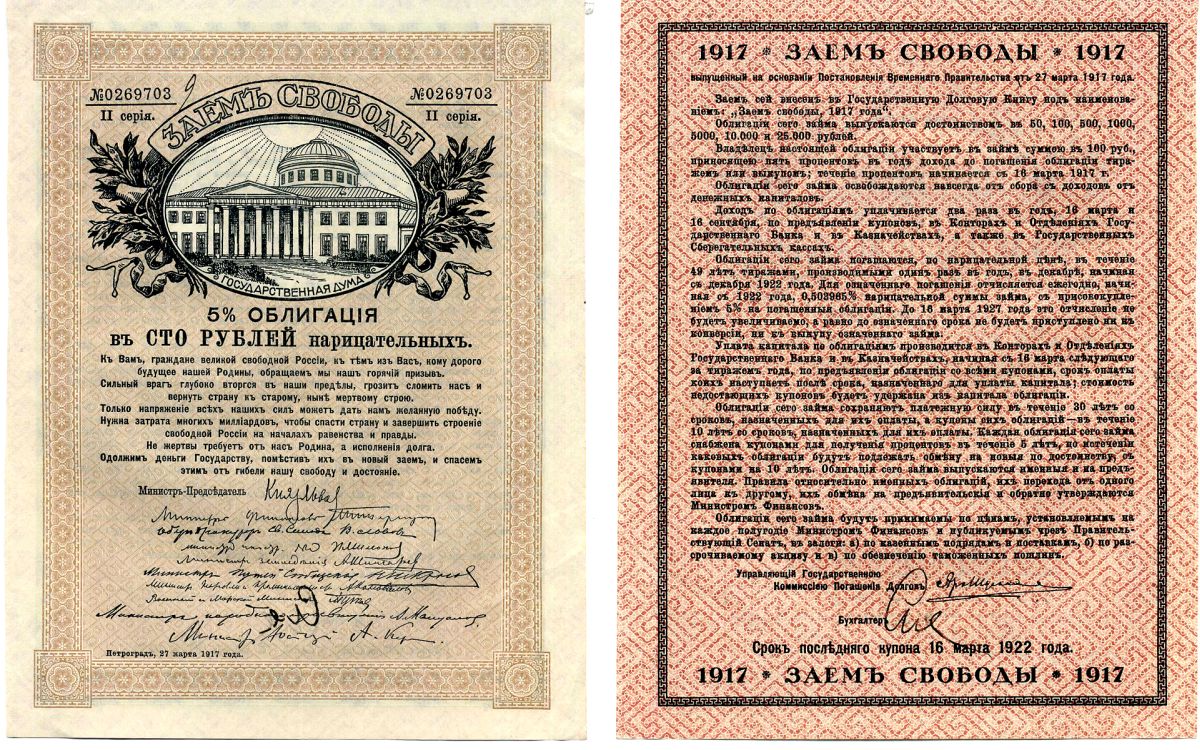 №0269703
№0269703
II серія.
II серія.
ЗАЕМЪ СВОБОДЫ
ГОСУДАРСТВЕННАЯ ДУМА
5% ОБЛИГАЦІЯ
въ СТО РУБЛЕЙ нарицательныхъ.
Къ Вамъ, граждане великой свободной Россіи, къ тѣмъ изъ Васъ, кому дорого
будущее нашей Родины, обращаемъ мы нашъ горячій призывъ.
Сильный врагъ глубоко вторгся въ наши предѣлы, грозитъ сломить насъ и
вернуть страну къ старому, нынѣ мертвому строю.
Только напряженіе всѣхъ нашихъ силъ можетъ дать намъ желанную побѣду.
Нужна затрата многихъ милліардовъ, чтобы спасти страну и завершить строеніе
свободной Россіи на началахъ равенства и правды.
Не жертвы требуетъ отъ насъ Родина, а исполненія долга.
Одолжимъ деньги Государству, помѣстивъ ихъ въ новый заемъ, и спасемъ
этимъ отъ гибели нашу свободу и достояніе.
Министръ-Предсѣдатель Кн. Львов
Министръ Финансовъ
Оберъ Прокуроръ Св. Синода В. Львовъ
Министръ земледѣлія А. Шингарев
Министръ Путей Сообщенія Н. Некрасов
Военный и Морской Министръ
Министръ народнаго просвѣщенія А. Мануйлов
Министръ Юстиціи А. Кер
Петроградъ, 27 марта 1917 года.
1917 * ЗАЕМЪ СВОБОДЫ * 1917
выпущенный на основаніи Постановленія Временнаго Правительства отъ 27 марта 1917 года.
Заемъ сей внесенъ въ Государственную Долговую Книгу подъ наименова-
ніемъ: „Заем свободы, 1917 года“
Облигаціи сего займа выпускаются достоинствомъ въ 50, 100, 500, 1000,
5000, 10.000 и 25.000 рублей.
Владѣлец настоящей облигаціи участвуетъ въ займѣ суммою въ 100 руб.,
приносящею пять процентовъ въ годъ дохода до погашенія облигаціи тира-
жемъ или выкупомъ; теченіе процентовъ начинается съ 16 марта 1917 г.
Облигаціи сего займа освобождаются навсегда отъ сбора съ доходовъ отъ
денежныхъ капиталовъ.
Доходъ по облигаціямъ уплачивается два раза въ годъ, 16 марта и
16 сентября, по предъявленіи купоновъ, въ Конторахъ и Отдѣленіяхъ Госу-
дарственнаго Банка и въ Казначействахъ, а также въ Государственныхъ
Сберегательныхъ кассахъ.
Облигаціи сего займа погашаются, по нарицательной цѣнѣ, въ теченіе
49 лѣтъ тиражами, производимыми одинъ разъ въ годъ, въ декабрѣ, начиная
съ декабря 1922 года. Для означеннаго погашенія отчисляется ежегодно, начи-
ная съ 1922 года, 0,502965% нарицательной суммы займа, съ присовокупле-
ніемъ 5% на погашенныя облигаціи. До 16 марта 1927 года это отчисленіе не
будетъ увеличиваемо, а равно до означеннаго срока не будетъ приступлено ни къ
конверсіи, ни къ выкупу означеннаго займа.
Уплата капитала по облигаціямъ производится въ Конторахъ и Отдѣленіяхъ
Государственнаго Банка и въ Казначействахъ, начиная съ 16 марта слѣдующаго
за тиражемъ года, по предъявленіи облигаціи со всѣми купонами, срокъ оплаты
коихъ наступаетъ послѣ срока, назначеннаго для уплаты капитала; стоимость
недостающихъ купоновъ будетъ удержана изъ капитала облигаціи.
Облигаціи сего займа сохраняютъ платежную силу въ теченіе 30 лѣтъ со
сроковъ, назначенныхъ для ихъ оплаты, а купоны сихъ облигацій — въ теченіе
10 лѣтъ со сроковъ, назначенныхъ для ихъ оплаты. Каждая облигація сего займа
снабжена купонами для полученія процентовъ въ теченіе 5 лѣтъ, по истеченіи
каковыхъ облигаціи будутъ подлежать обмѣну на новыя по достоинству, съ
купонами на 10 лѣтъ. Облигаціи сего займа выпускаются именныя и на предъ-
явителя. Правила относительно именныхъ облигацій, ихъ перехода отъ одного
лица къ другому, ихъ обмѣна на предъявительскія и обратно утверждаются
Министромъ Финансовъ.
Облигаціи сего займа будутъ принимаемы по цѣнамъ, установляемымъ на
каждое полугодіе Министромъ Финансовъ и публикуемымъ чрезъ Правитель-
ствующій Сенатъ, въ залоги: а) по казеннымъ подрядамъ и поставкамъ, б) по раз-
срочиваемому акцизу и в) по обезпеченію таможенныхъ пошлинъ.
Управляющій Государственною
Коммиссіею Погашенія Долговъ
Бухгалтеръ
Срокъ послѣдняго купона 16 марта 1922 года.
1917 * ЗАЕМЪ СВОБОДЫ * 1917